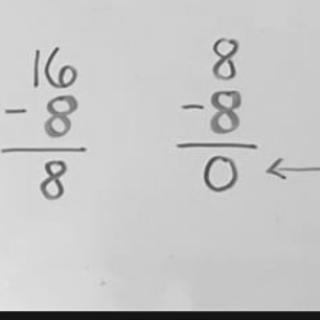 16
- 8
8
8
-8
0 ←